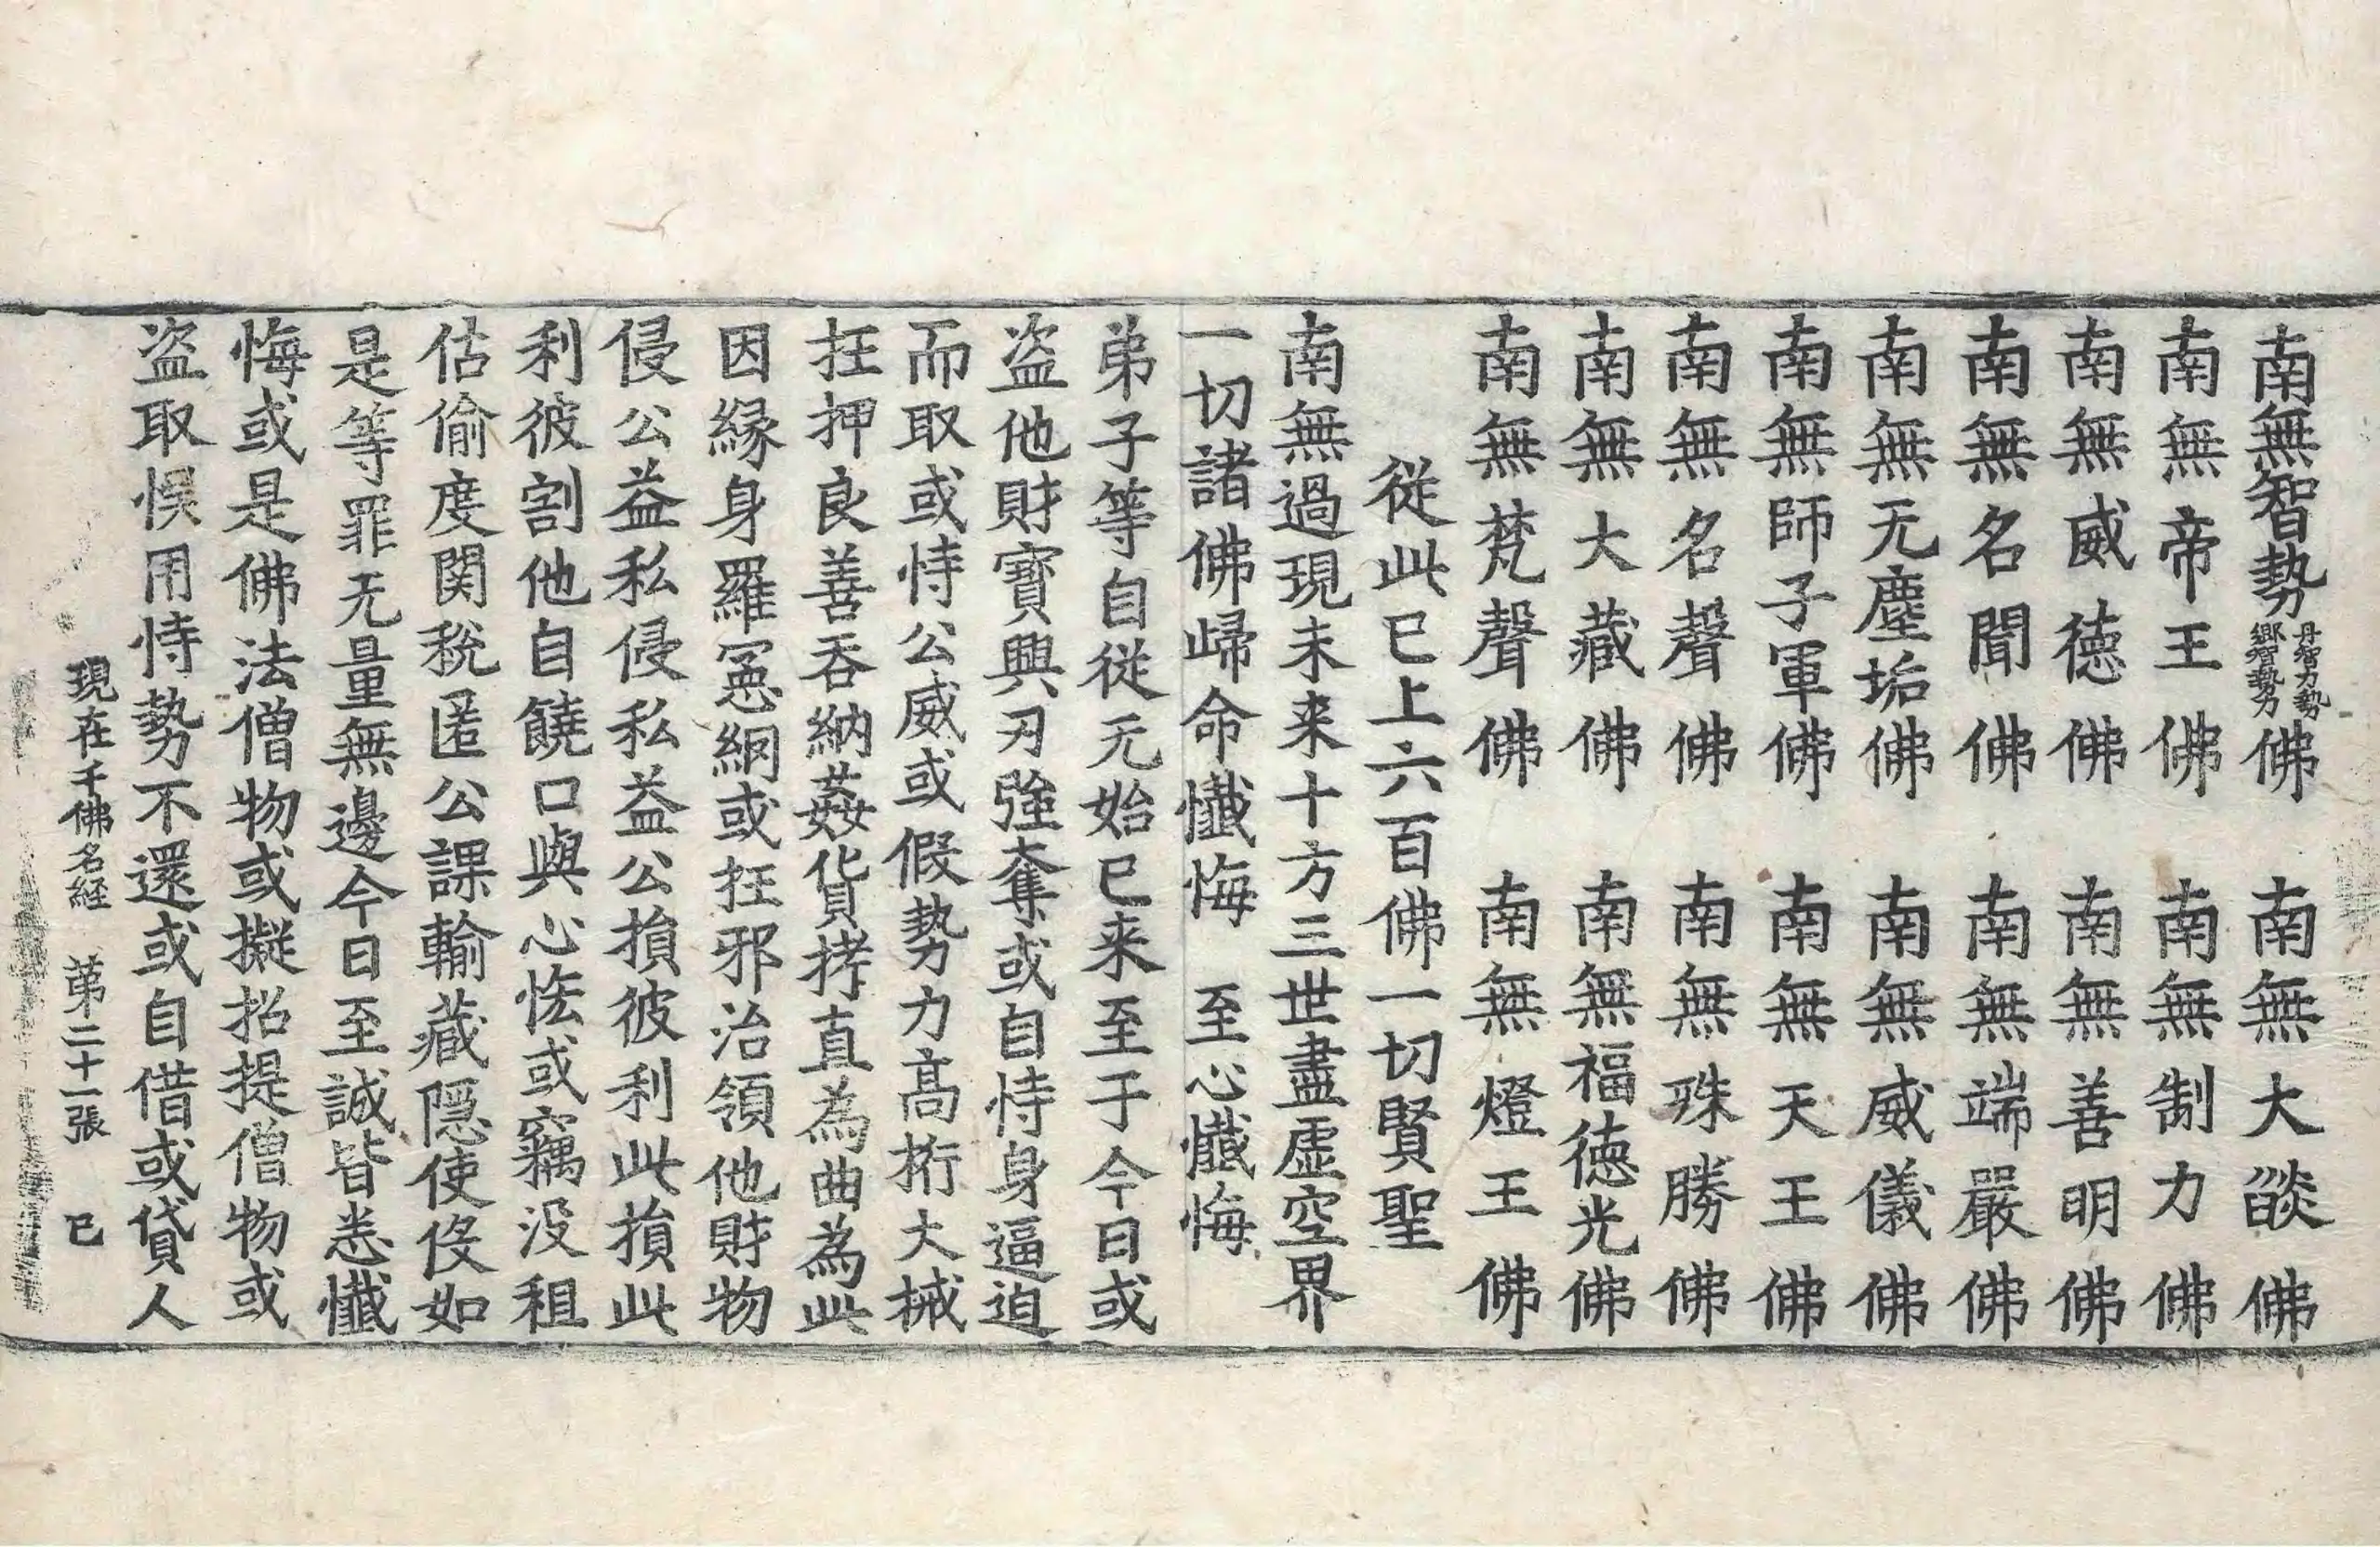 南無智勢丹智力勢鄉智勢力佛 南無大燄佛
南無帝王佛 南無制力佛
南無威德佛 南無善明佛
南無名聞佛 南無端嚴佛
南無无塵垢佛 南無威儀佛
南無師子軍佛 南無天王佛
南無名聲佛 南無殊勝佛
南無大藏佛 南無福德光佛
南無梵聲佛 南無燈王佛
從此已上六百佛一切賢聖
南無過現未来十方三世盡虛空界
一切諸佛歸命懺悔 至心懺悔
弟子等自從无始已来至于今日或
盜他財寶興刃強奪或自恃身逼迫
而取或恃公威或假勢力高桁大械
抂押良善吞納姦貨拷直為曲為此
因緣身羅冤網或抂邪治領他財物
侵公益私侵私益公損彼利此損此
利彼割他自饒口與心悋或竊没租
估偷度関稅匿公課輸藏隱使伇如
是等罪无量無邊今日至誠皆悉懺
悔或是佛法僧物或擬招提僧物或
盜取悮用恃勢不還或自借或貸人
現在千佛名経 第二十一張 已